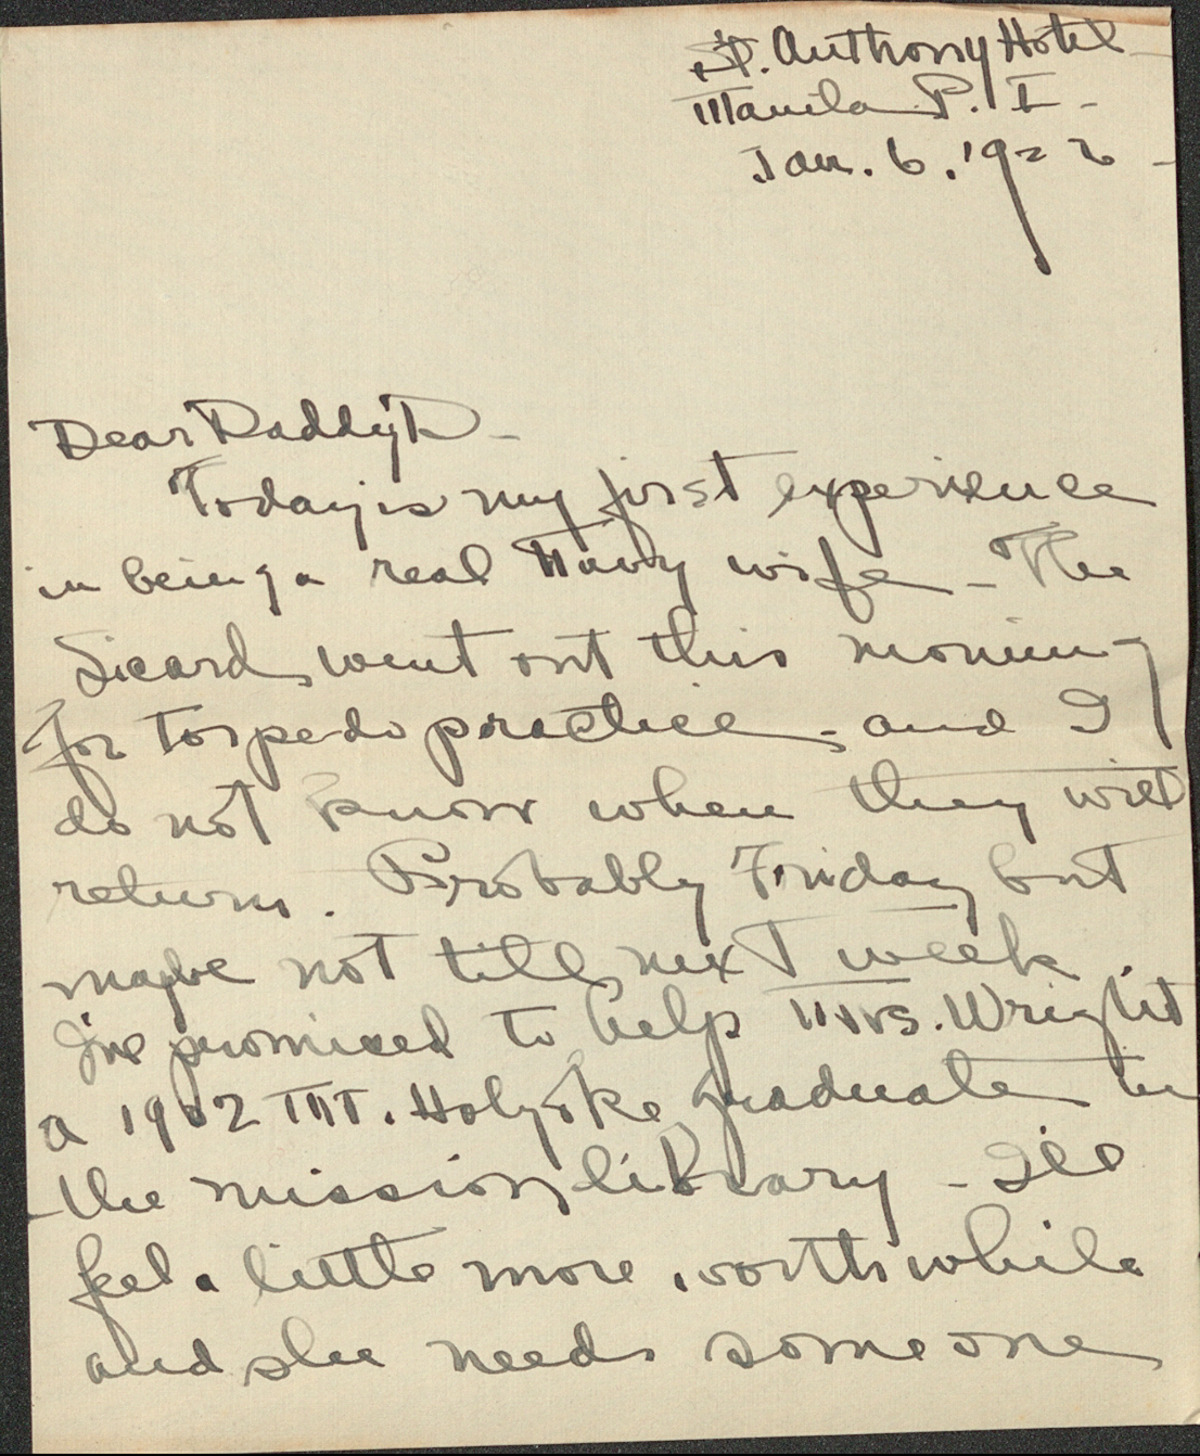 St. Anthony Hotel
Manila P. I -
Jan. 6. 1922 -
Dear Daddy D -
Today is my first experience
in being a real Navy wife - The
Sicard went out this morning
for torpedo practice - and I
do not know when they will
return. Probably Friday but
maybe not till next week.
I've promised to help Mrs. Wright
a 1902 Mt. Holyoke graduate in
the mission library - I'll
feel a little more worth while
and she needs some one